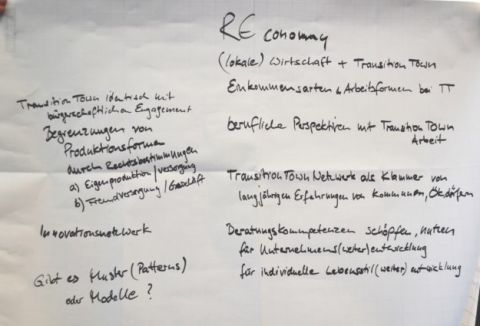 REconomy
(lokale) Wirtschaft + Transition Town
Einkommensarten & Arbeitsformen bei TT
berufliche Perspektiven mit Transition Town
Arbeit
Transition Town Netzwerk als Klammer von
langjährigen Erfahrungen von Kommunen, Ökodörfern
Beratungskompetenzen schöpfen, nutzen
für Unternehmens(weiter)entwicklung
für individuelle Lebensstil(weiter)entwicklung
Transition Town identisch mit
bürgerschaftlichen Engagement
Begrenzungen von
Produktionsformen
durch Rechtsbestimmungen
a) Eigenproduktion/versorgung
b) Fremdversorgung/Geschäft
Innovationsnetzwerk
Gibt es Muster (Patterns)
oder Modelle?